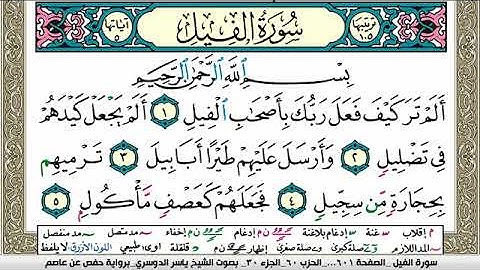 ترتيبها ١٠٥ سُورَةُ الْفِيلِ آياتها ٥
بِسْمِ اللَّهِ الرَّحْمَٰنِ الرَّحِيمِ
أَلَمْ تَرَ كَيْفَ فَعَلَ رَبُّكَ بِأَصْحَابِ الْفِيلِ ١ أَلَمْ يَجْعَلْ كَيْدَهُمْ
فِي تَضْلِيلٍ ٢ وَأَرْسَلَ عَلَيْهِمْ طَيْرًا أَبَابِيلَ ٣ تَرْمِيهِم
بِحِجَارَةٍ مِّن سِجِّيلٍ ٤ فَجَعَلَهُمْ كَعَصْفٍ مَّأْكُولٍ ٥
م إقلاب غنة ن م إدغام ن م إخفاء مد متصل مد منفصل
مد اللازم صلة كبرى وصلة صغرى إظهار ن م قلقلة اوى: طبيعي اللون الأزرق لا يلفظ
سورة الفيل _الصفحة ٦٠١...._الحزب ٦٠_الجزء ٣٠_ بصوت الشيخ ياسر الدوسري_برواية حفص عن عاصم